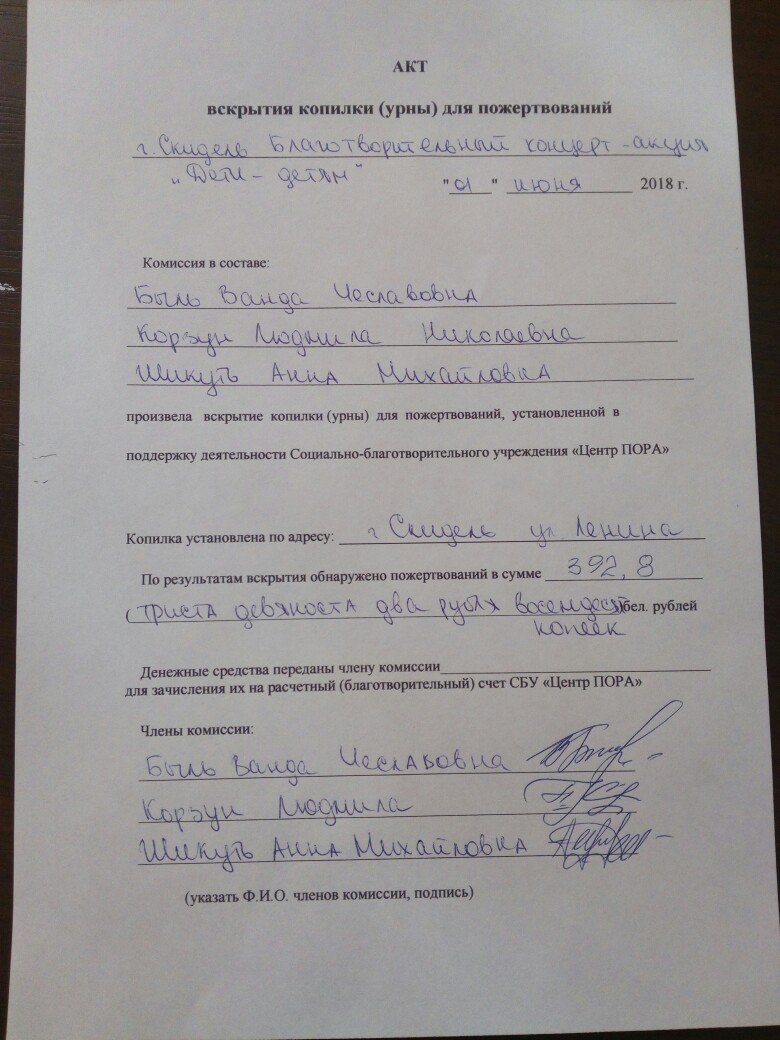 АКТ
вскрытия копилки (урны) для пожертвований
г. Скидель Благотворительный концерт-акция
"Дети - детям"
"01" июня 2018 г.
Комиссия в составе:
Быль Ванда Чеславовна
Корзун Людмила Николаевна
Шикуть Анна Михайловна
произвела вскрытие копилки (урны) для пожертвований, установленной в
поддержку деятельности Социально-благотворительного учреждения «Центр ПОРА»
Копилка установлена по адресу: г Скидель ул. Ленина
По результатам вскрытия обнаружено пожертвований в сумме 392,8
(триста девяноста два рубля восемдесят)бел. рублей
копеек
Денежные средства переданы члену комиссии
для зачисления их на расчетный (благотворительный) счет СБУ «Центр ПОРА»
Члены комиссии:
Быль Ванда Чеславовна
Корзун Людмила
Шикуть Анна Михайловна
(указать Ф.И.О. членов комиссии, подпись)